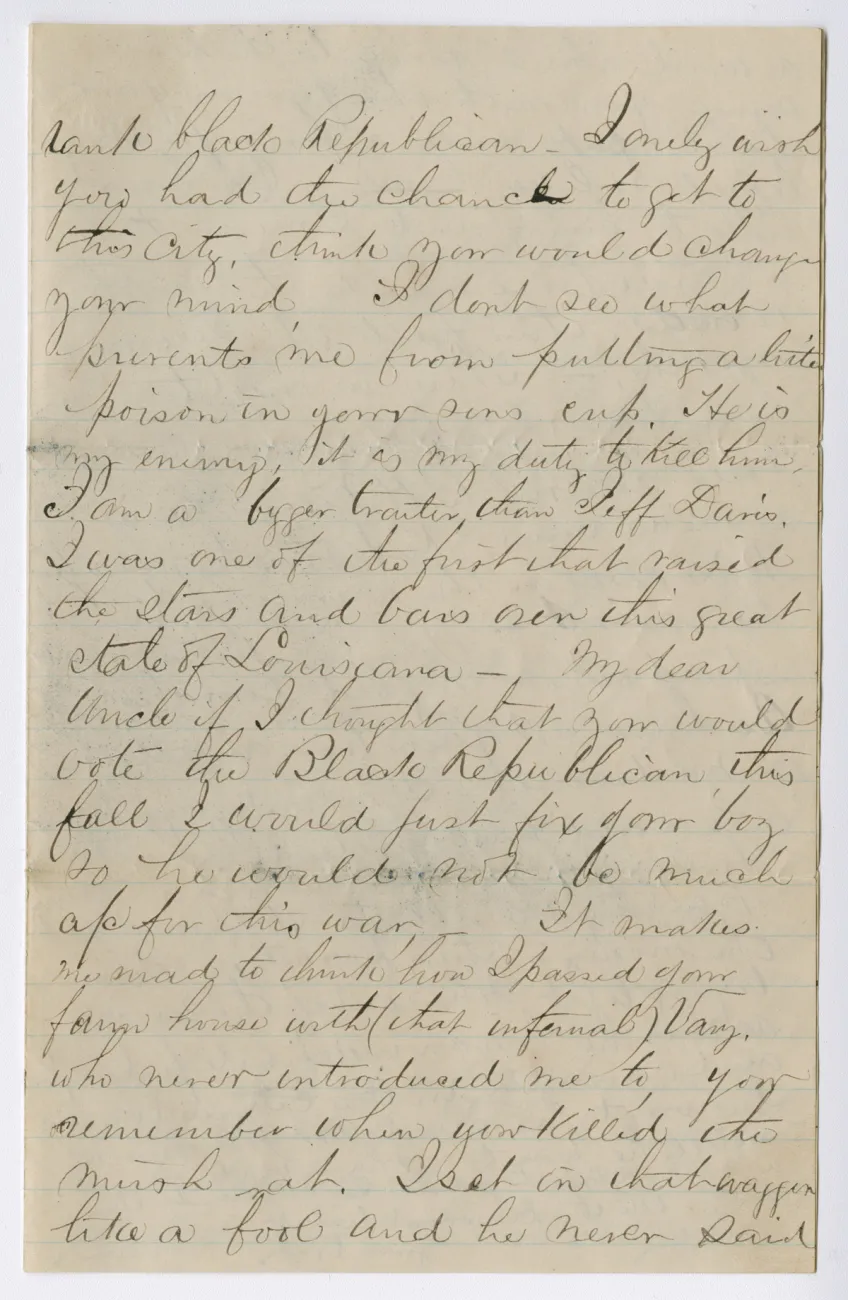 rank black Republican – I onely wish
you had the chance to get to
this City, think you would change
your mind I dont see what
prevents me from putting a little
poison in your sons cup. He is
my enemy, it is my duty to Kill him.
I am a bigger traiter than Jeff Davis.
I was one of the first that raised
the stars and bars over this great
state of Louisiana – My dear
Uncle if I thought that you would
vote the Black Republican this
fall I would just fix your boy
so he would not be much
a/c for this war, – It makes
me mad to think how I passed your
farm house with (that infernal) Vany.
who never introduced me to, you
remember when you Killed the
mush rat. I set in that waggon
like a fool and he never said